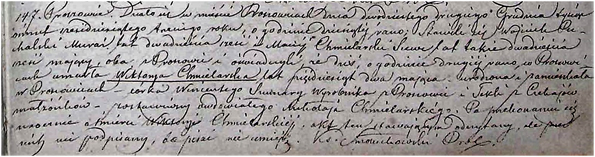 147. Proszowice. Działo się w mieście Proszowicach dnia dwudziestego drugiego Grudnia tysiąc
ośmset sześćdziesiątego trzeciego roku, o godzinie dziesiątej rano, Stawili się Wojciech
Murarz, lat dwadzieścia sześć i Maciej Chmielarski Szewc lat także dwadzieścia
sześć mający, oba z Proszowic i oświadczyli, że dziś, o godzinie drugiej rano, w Proszowi-
cach umarła Wiktorja Chmielarska lat pięćdziesiąt dwa mająca, urodzona i zamieszkała
w Proszowicach córka Wincentego wyrobnika z Proszowic i Tekli z
małżonków. zostawiwszy owdowiałego Mikołaja Chmielarskiego. Po przekonaniu się
naocznie o śmierci Wiktorji Chmielarskiej, akt ten stawającym odczytany, lecz przez
nich nie podpisany, bo pisać nie umieją. Ks.